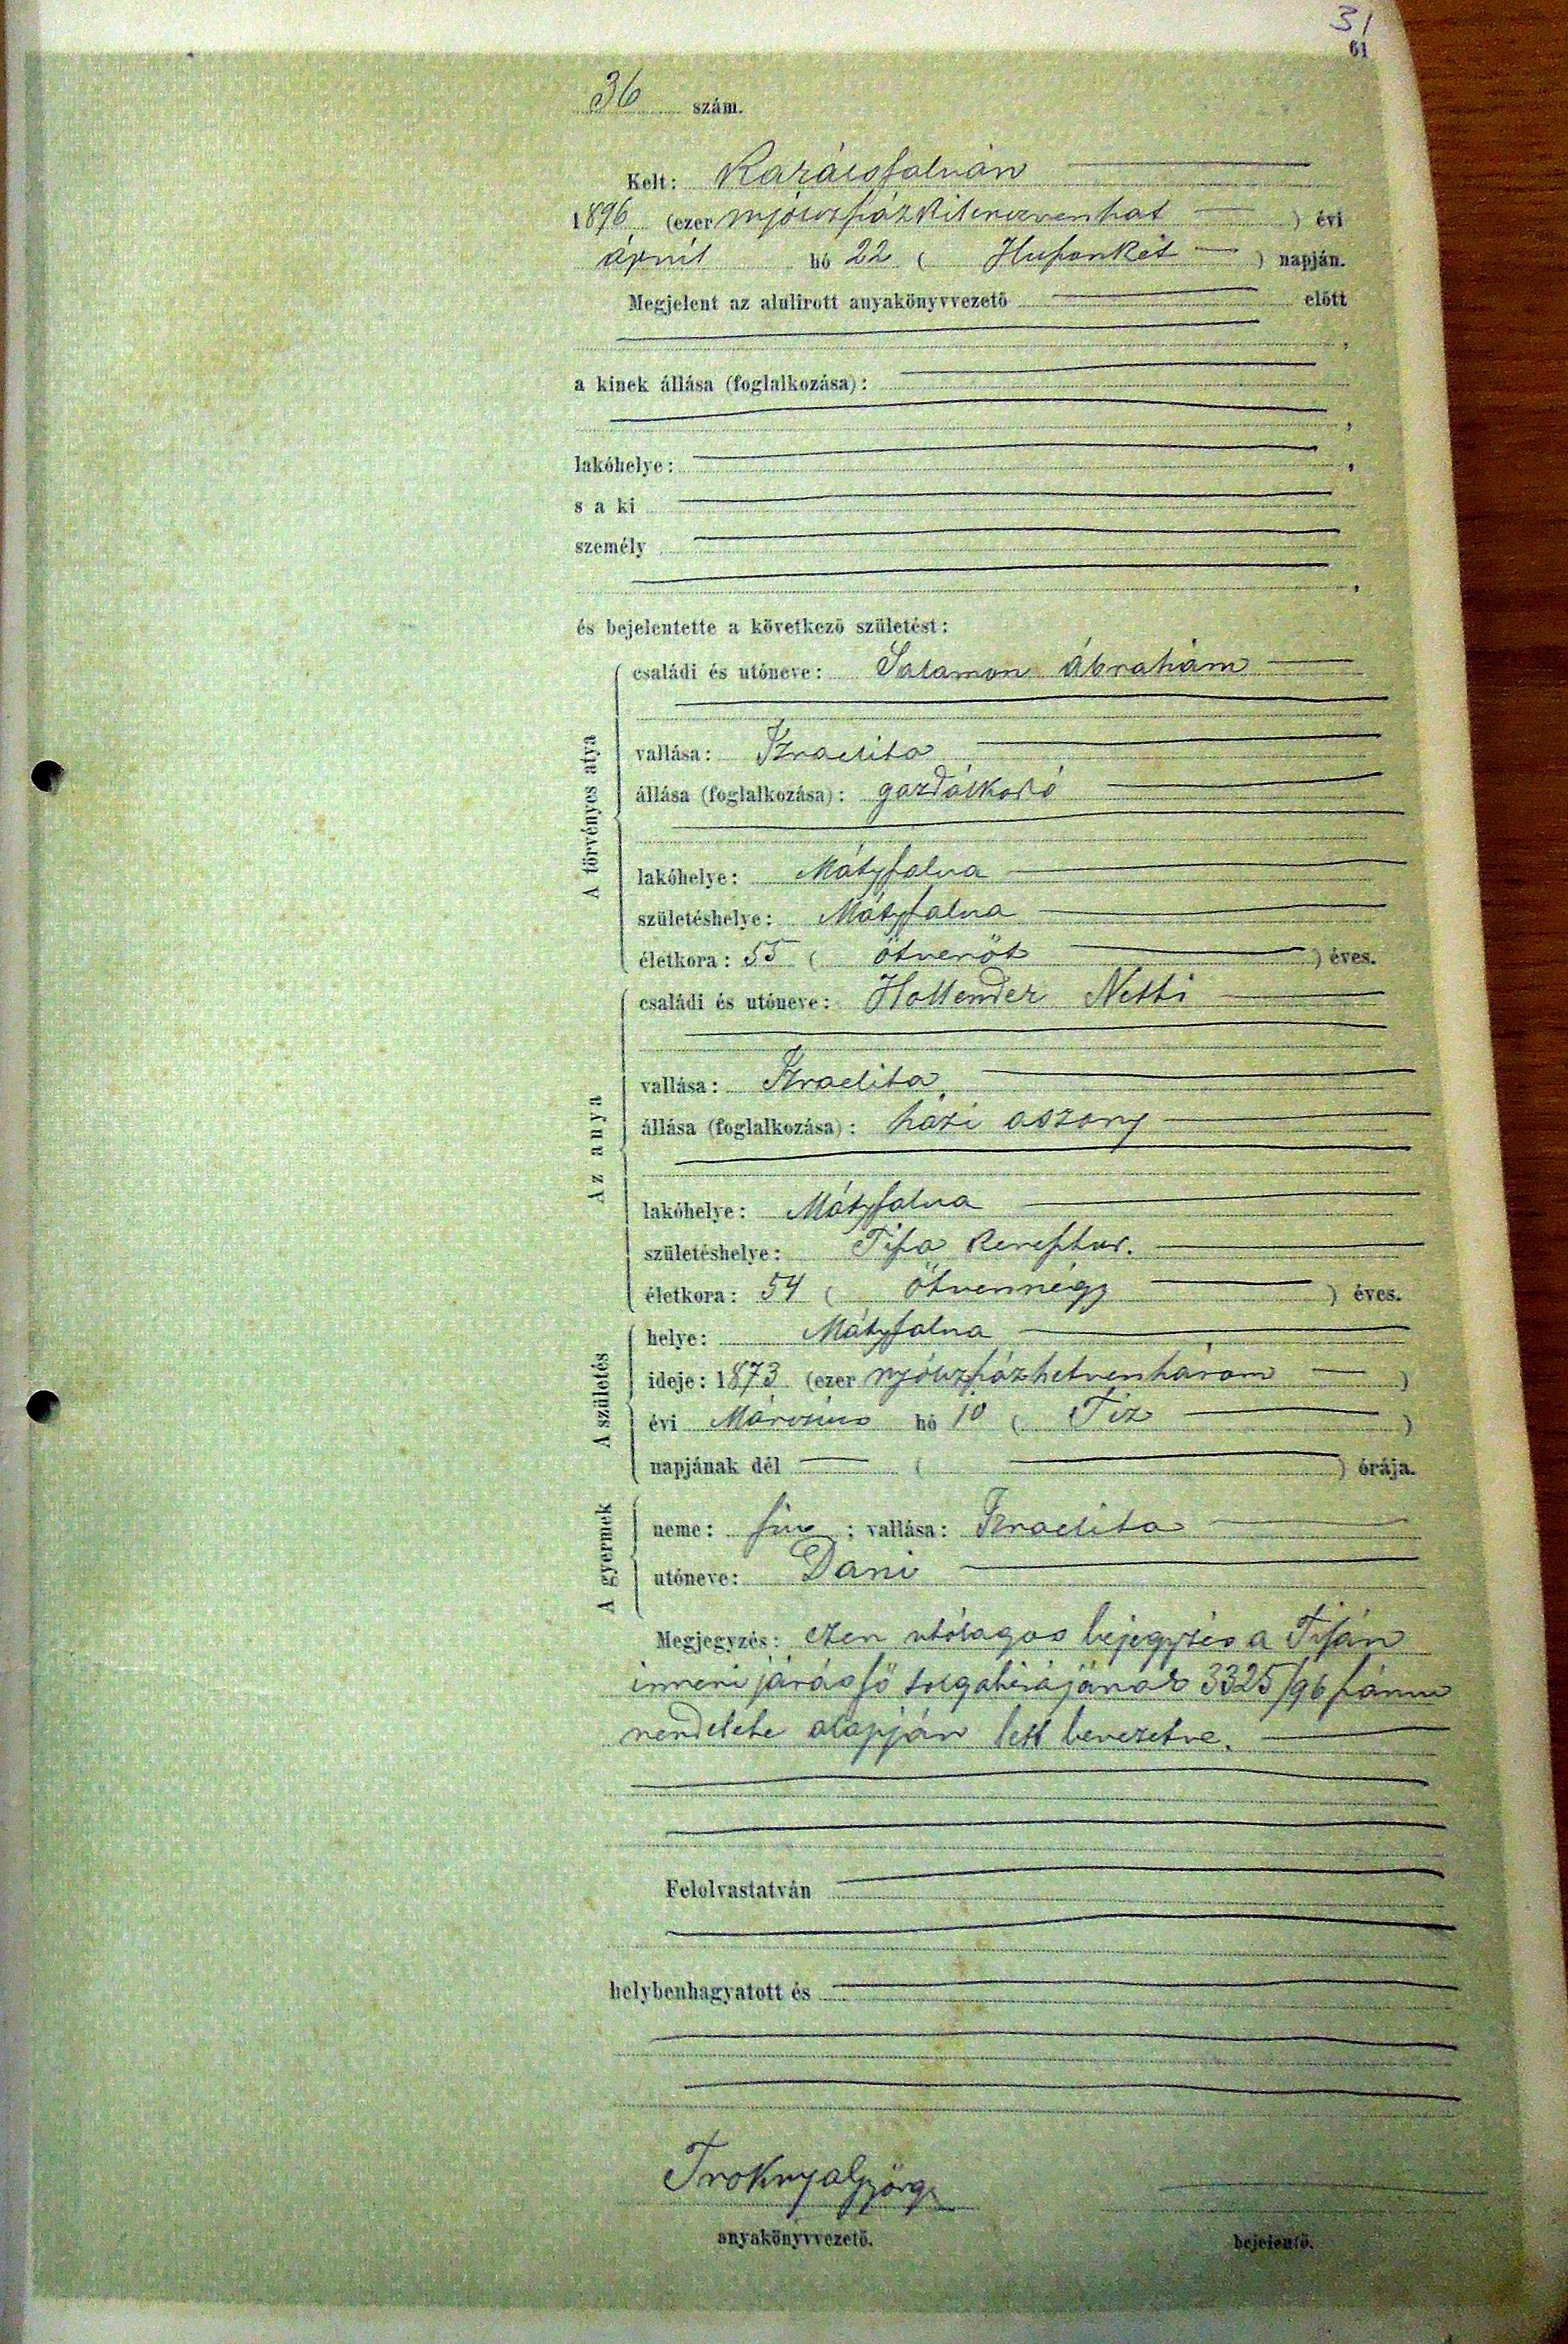 31
61
36 szám.
Kelt: Karácsfalván
1896 (ezer nyólczszázkilenczvenhat) évi
április hó 22 (Huszonkét) napján.
Megjelent az alulirott anyakönyvvezető előtt
,
a kinek állása (foglalkozása):
,
lakóhelye: ,
s a ki
személy
,
és bejelentette a következő születést:
A törvényes atya
családi és utóneve: Salamon Ábrahám
vallása: Izraelita
állása (foglalkozása): gazdálkodó
lakóhelye: Mátyfalva
születéshelye: Mátyfalva
életkora: 55 (ötvenöt) éves.
Az anya
családi és utóneve: Hollender Netti
vallása: Izraelita
állása (foglalkozása): házi aszony
lakóhelye: Mátyfalva
születéshelye: Tisza Keresztur.
életkora: 54 (ötvennégy) éves.
A születés
helye: Mátyfalva
ideje: 1873 (ezer nyólczszázhetvenhárom)
évi Márczius hó 10 (Tiz)
napjának dél ( ) órája.
A gyermek
neme: fiu; vallása: Izraelita
utóneve: Dani
Megjegyzés: ezen utólagos bejegyzés a Tiszán
inneni járás fő szolgabirájának 3325/96 számu
rendelete alapján lett bevezetve.
Felolvastatván
helybenhagyatott és
Troknya György
anyakönyvvezető.
bejelentő.